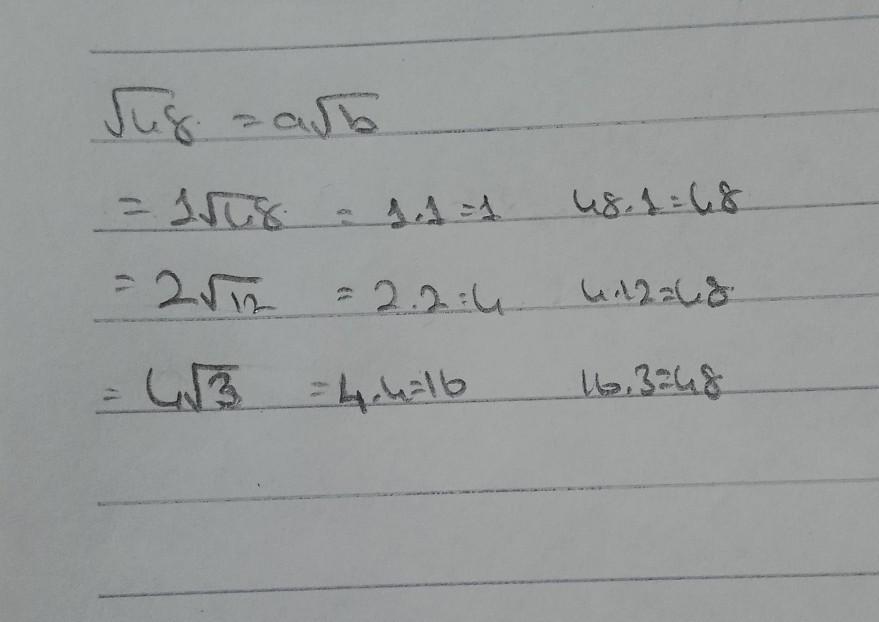 √48 = a√b
= 1√48 = 1.1=1 48.1=48
= 2√12 = 2.2=4 4.12=48
= 4√3 = 4.4=16 16.3=48